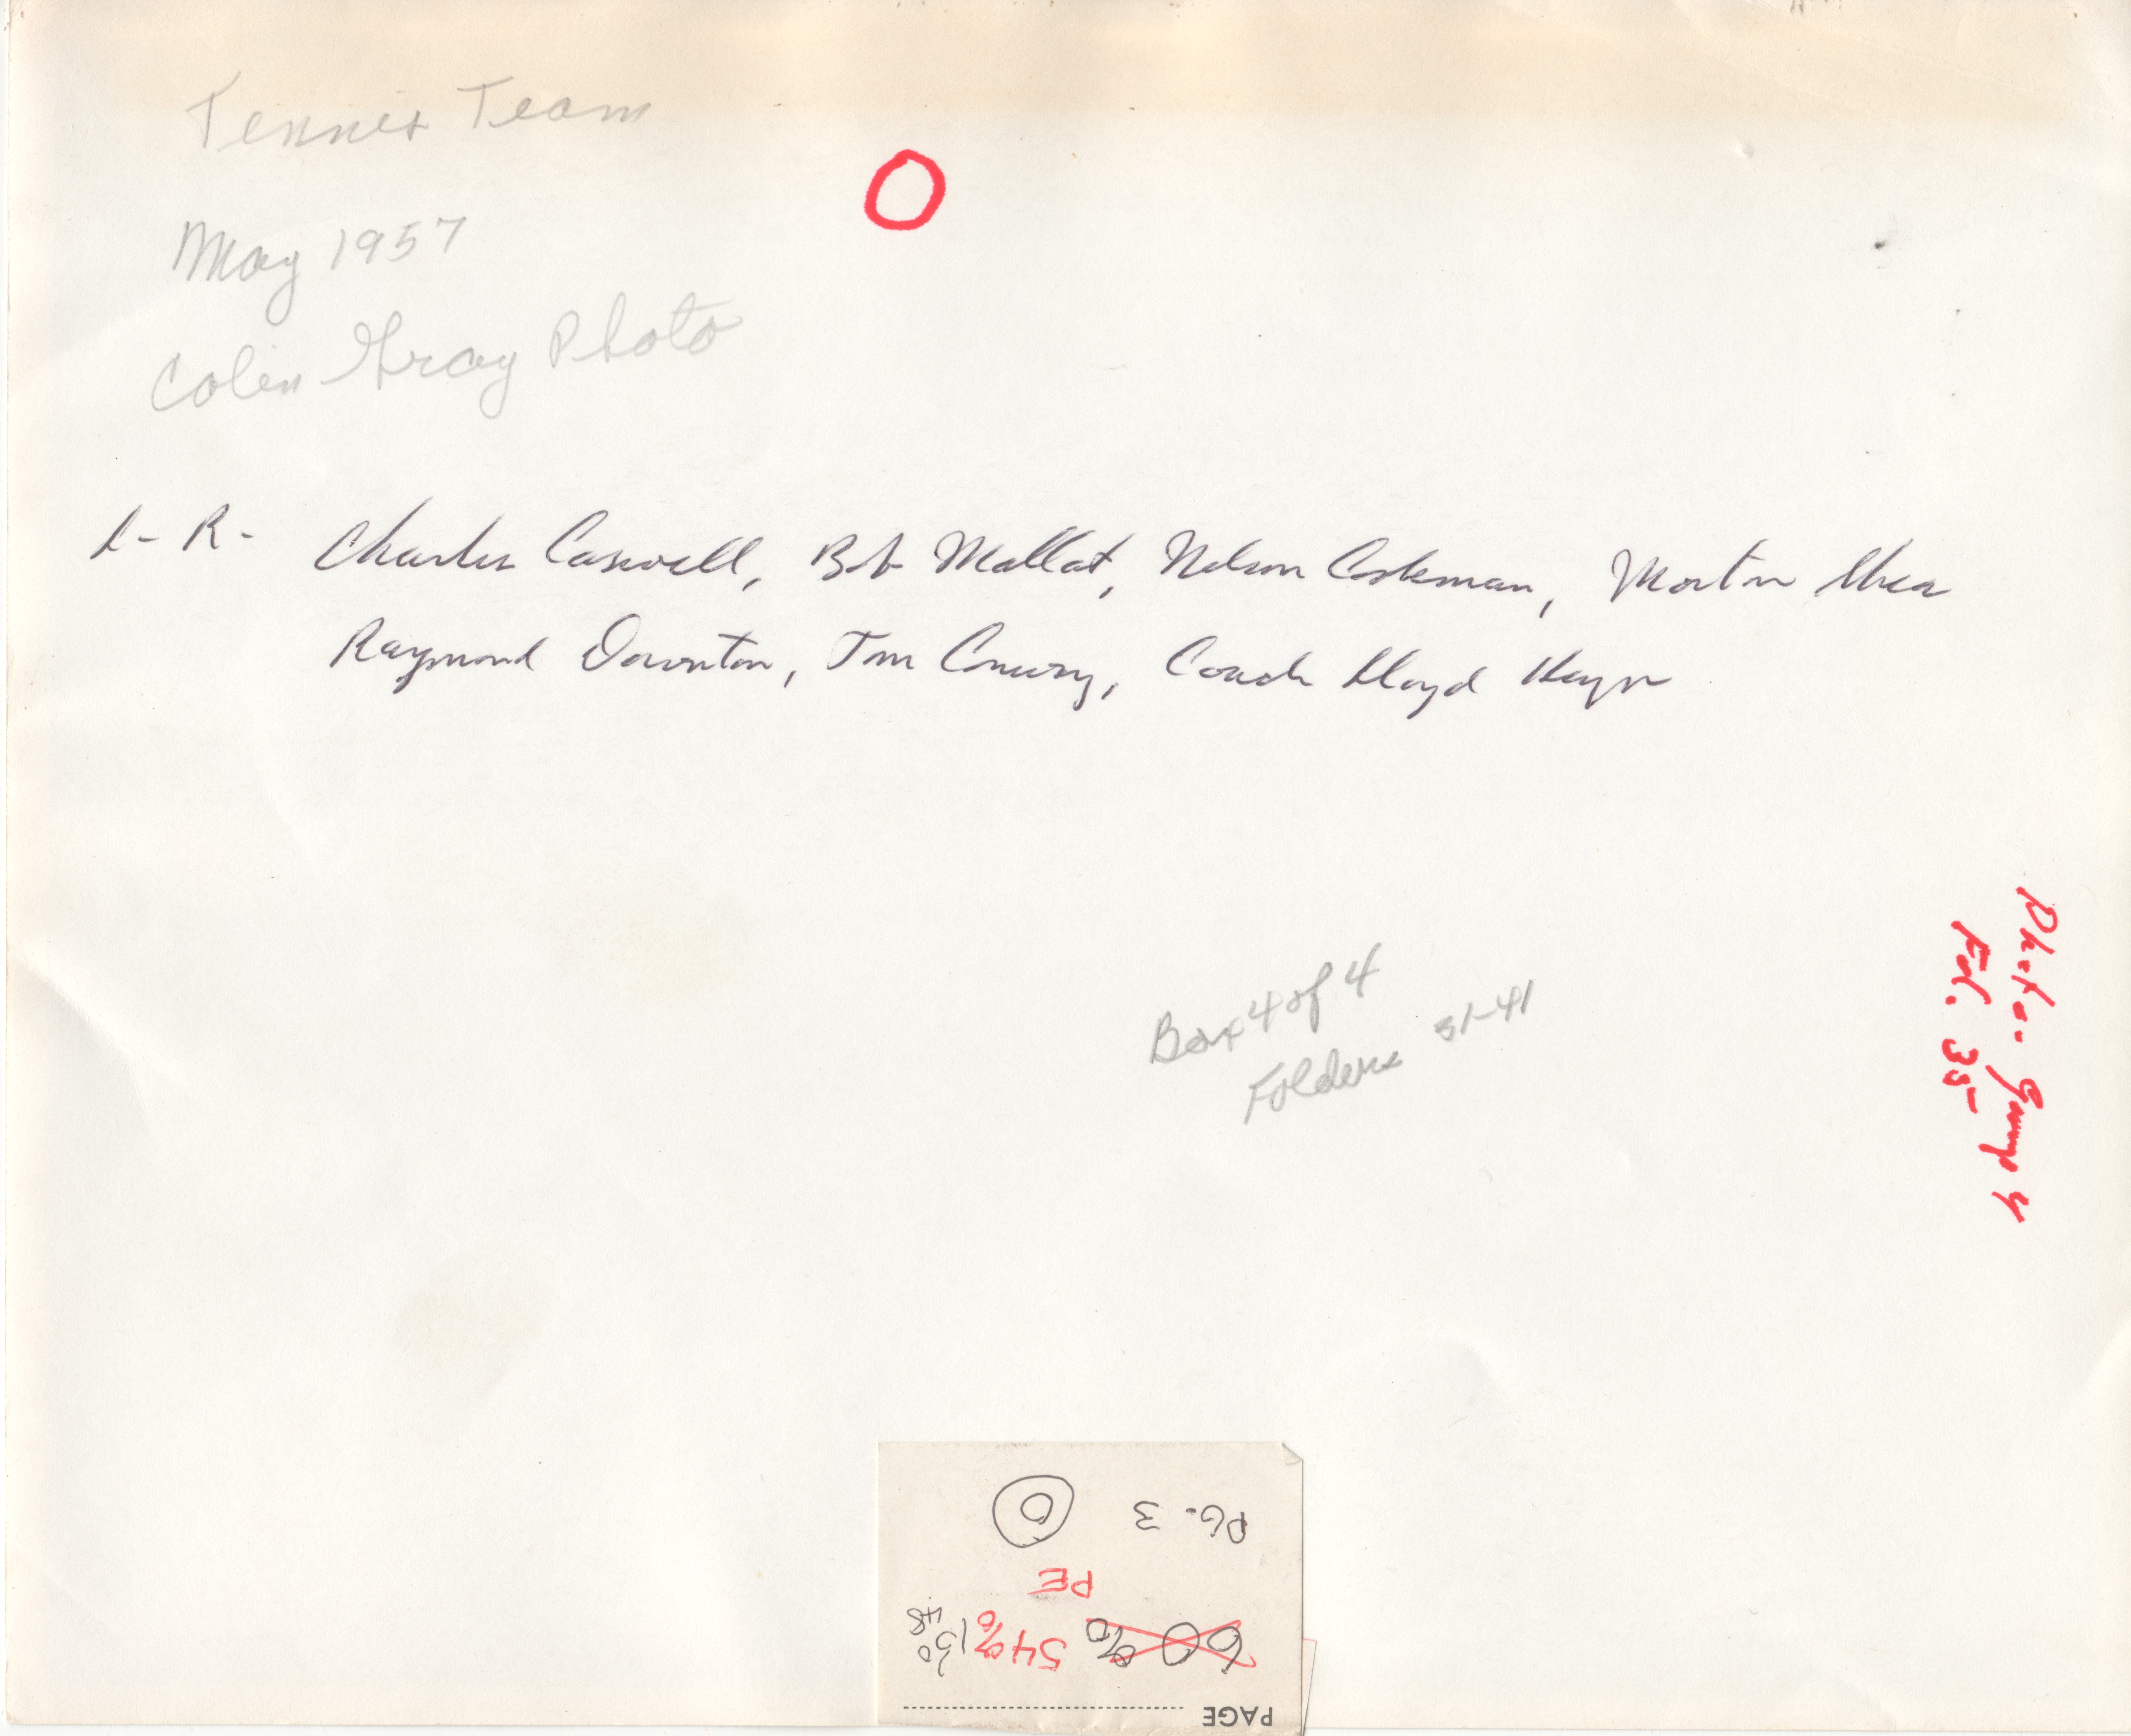 Tennis Team
May 1957
Colin Gray Photo
L - R - Charles Caswell, Bob Mallat, Nelson Corkeman, Morton Shea
Raymond Downton, Tom Conway, Coach Lloyd Hayn
Box 4 of 4
Folders 31-41
Photo. Group 4
Fol. 35
PAGE
60% 54%
PE
PG. 3 O